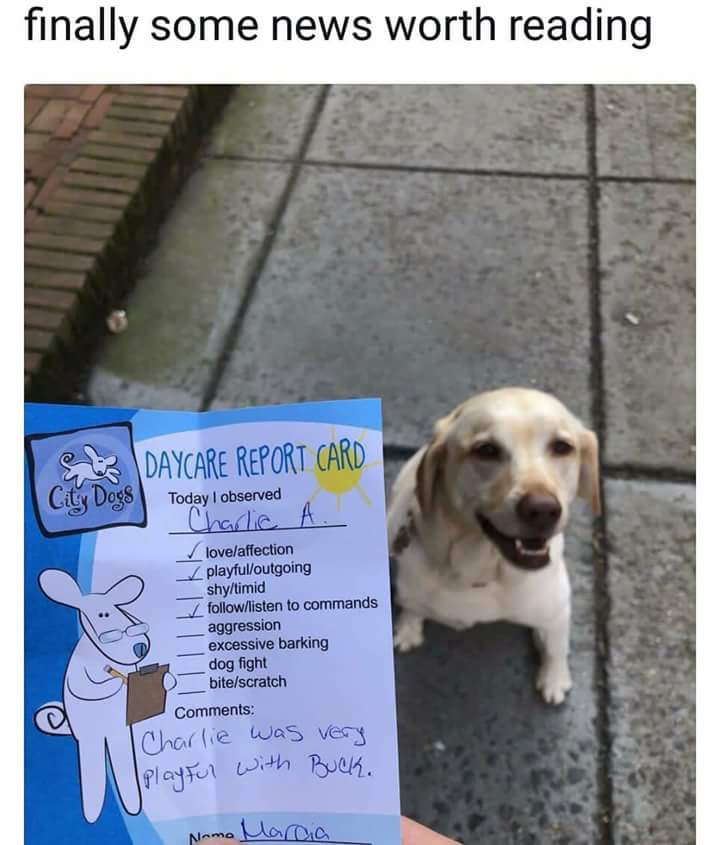 finally some news worth reading
City Dogs
DAYCARE REPORT CARD
Today I observed
Charlie A.
✓ love/affection
✓ playful/outgoing
shy/timid
✓ follow/listen to commands
aggression
excessive barking
dog fight
bite/scratch
Comments:
Charlie was very
playful with Buck.
Name Marcia